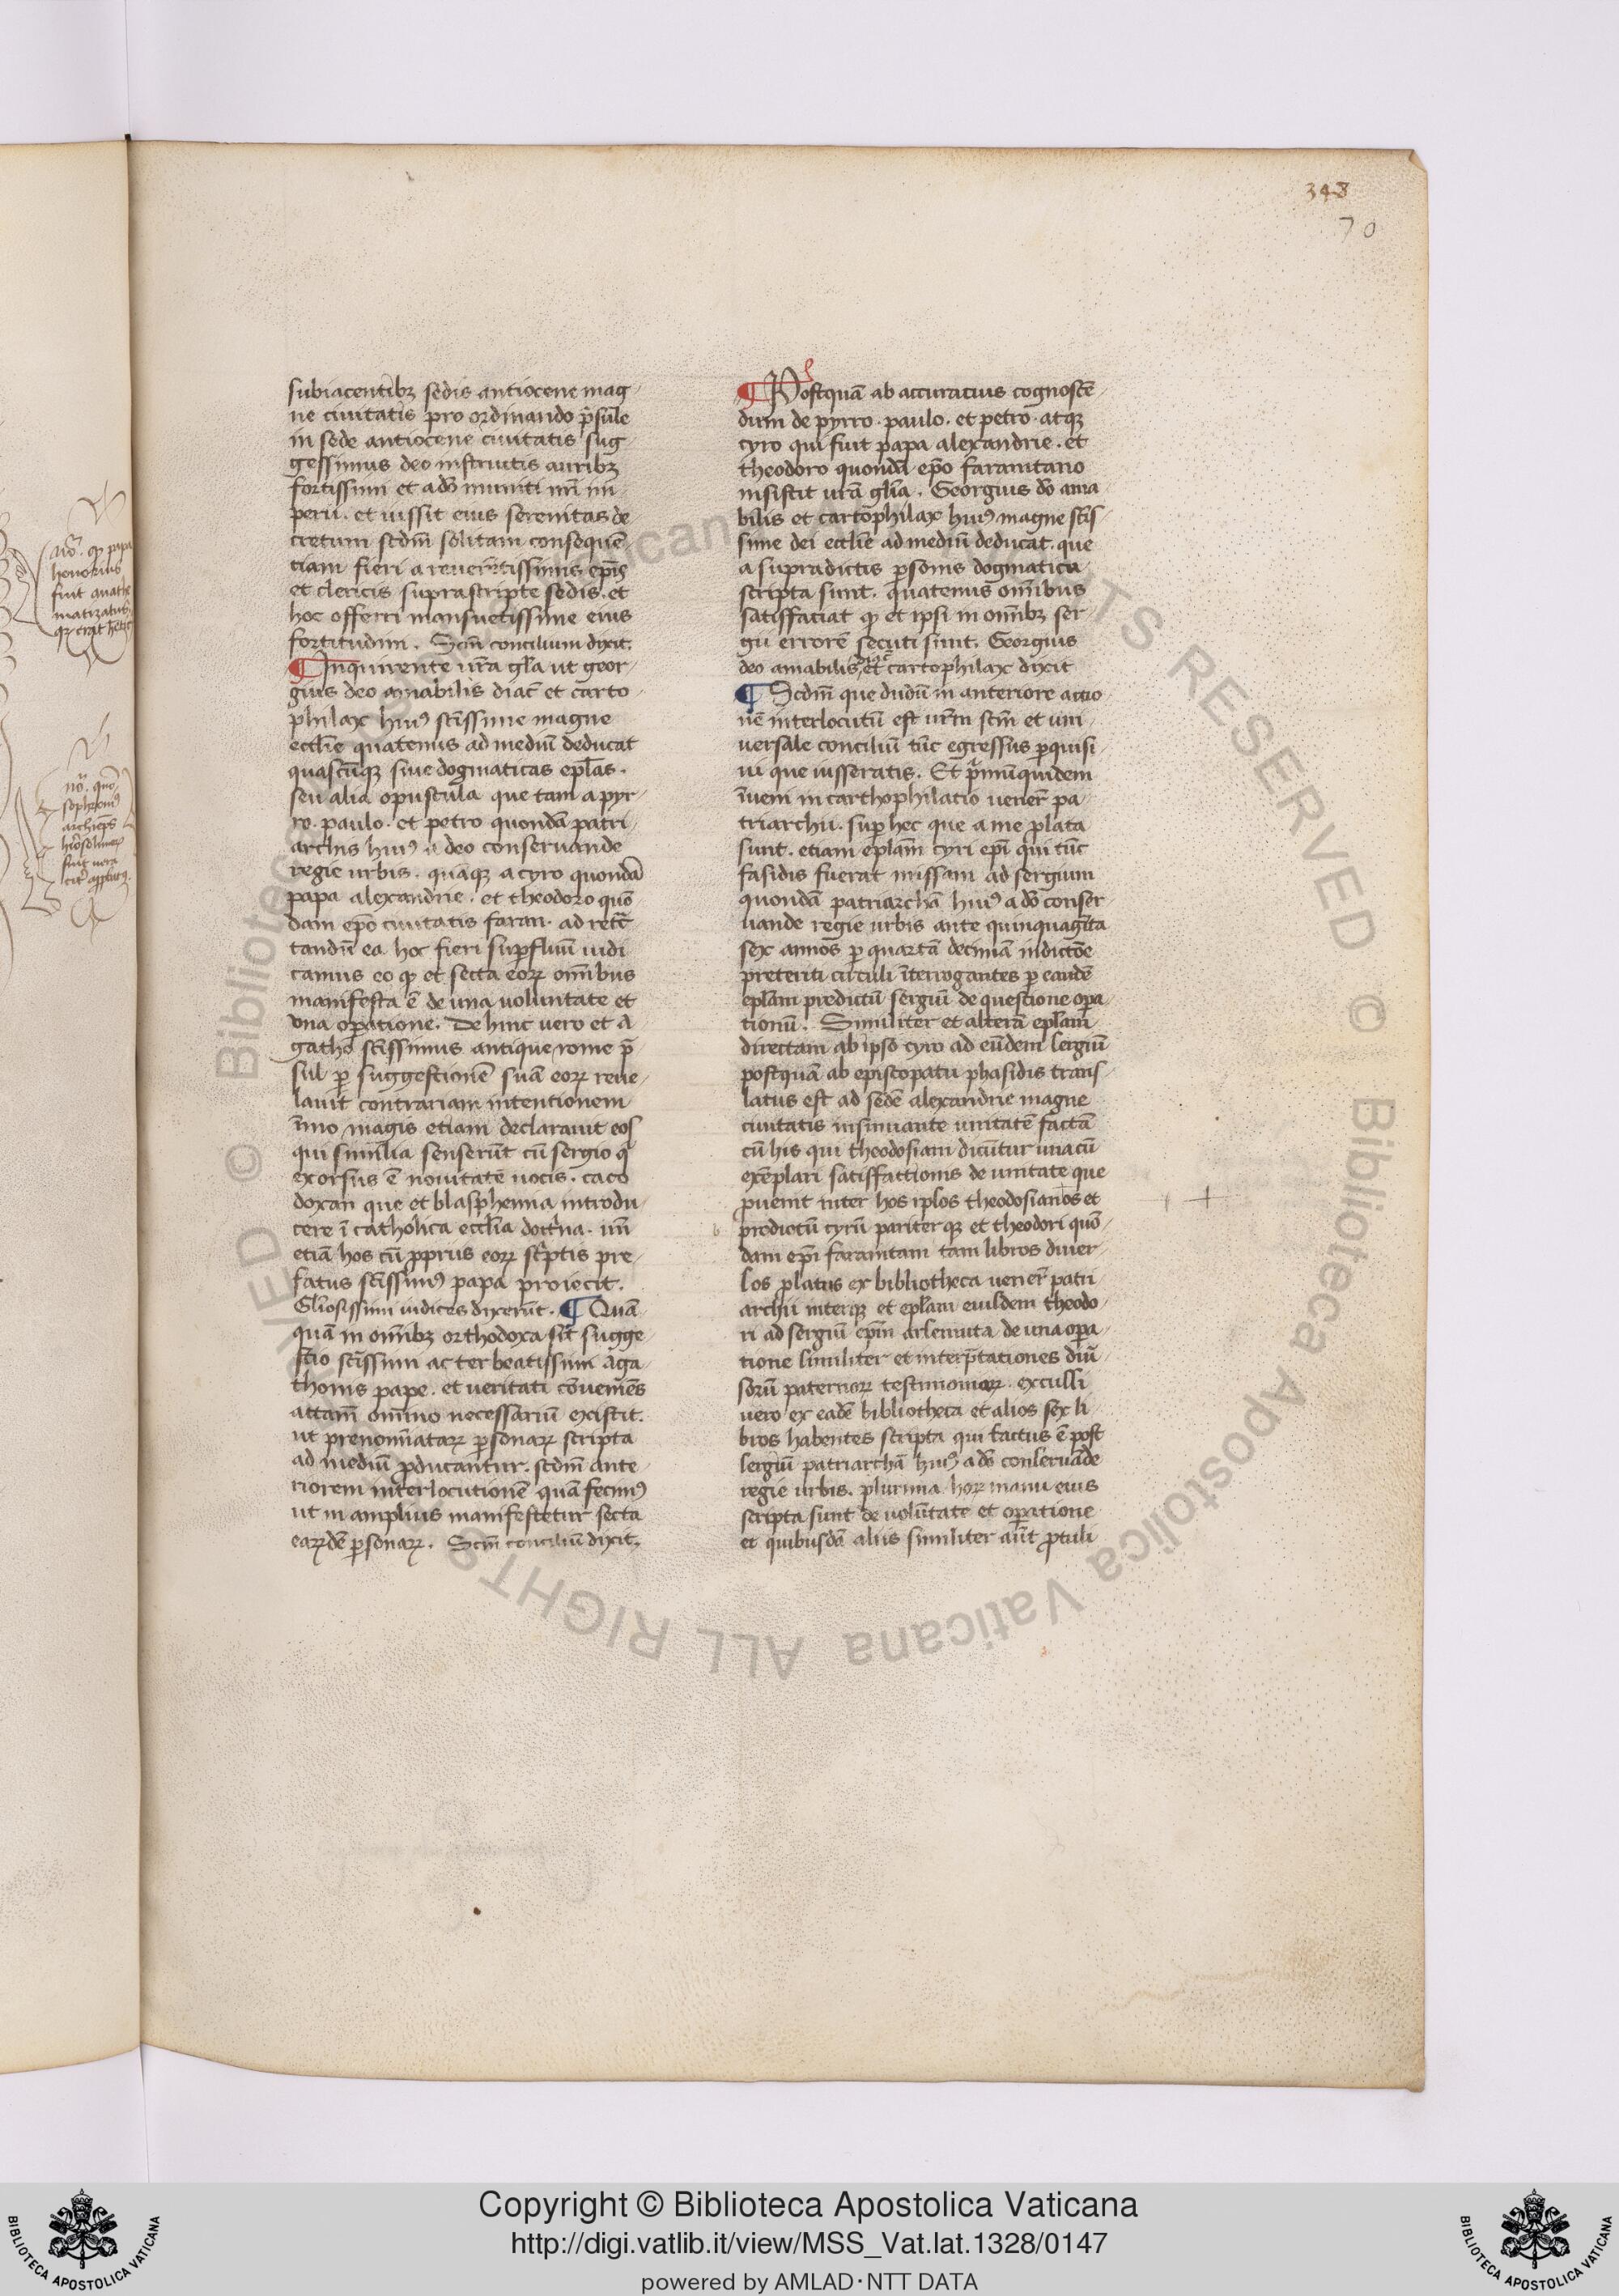 348
70
subiacentibꝫ sedis antiocene mag
ne ciuitatis pro ordinando p̃sule
in sede antiocene ciuitatis sug
gessimus deo instructis auribꝫ
fortissimi et a dõ muniti nr̃i im
perii. et iussit eius serenitas de
cretum scdm̃ solitam consequẽ
tiam fieri a reuerẽtissimis ep̃is
et clericis suprascripte sedis. et
hoc offerri mansuetissime eius
fortitudini. Scm̃ concilium dixit.
¶ Inquirente ur̃a gl̃a ut geor
gius deo amabilis diac̃ et carto
philax huiꝰ scissime magne
eccl̃ie quatenus ad mediũ deducat
quascũqꝫ siue dogmaticas epl̃as.
seu alia opuscula que tam a pyr
ro. paulo. et petro quondã patri
archis huiꝰ a deo conseruande
regie urbis. quãqꝫ a cyro quondã
papa alexandrie. et theodoro quõ
dam ep̃o ciuitatis faran. ad rect̃
tandũ ea. hoc fieri suꝑfluũ iudi
camus eo ꝙ et secta eoꝝ om̃ibus
manifesta ẽ de una uoluntate et
una oꝑatione. De hinc uero et a
gatho scissimus antique rome p̃
sul ꝑ suggestionẽ suã eoꝝ reue
lauit contrariam intentionem
ĩmo magis etiam declarauit eos
qui similia senserũt cũ sergio q̃
exorsus ẽ nouitatẽ uocis. caco
doxan que et blasphemia introdu
cere ĩ catholica eccl̃ia doctĩna. nr̃i
etiã hos cũ ꝓpriis eoꝝ scĩptis pre
fatus scissimꝰ papa proiecit.
Gl̃iosissimi iudices dixerũt. ¶ Quã
quã in om̃ibꝫ orthodoxa sit sugge
stio scissimi ac ter beatissimi aga
thonis pape. et ueritati cõueniẽs
attam̃ om̃ino necessariũ existit.
ut prenomĩataꝝ ꝑsonaꝝ scripta
ad mediũ ꝓducantur. scdm̃ ante
riorem interlocutionẽ quã fecimꝰ
ut in amplius manifestetur secta
eaꝝdẽ ꝑsonaꝝ. Scm̃ conciliũ dixit.
¶ Postquã ab accuracius cognoscẽ
dum de pyrro. paulo. et petro. atqꝫ
cyro qui fuit papa alexandrie. et
theodoro quondã ep̃o faranitano
insistit ur̃a gl̃ia. Georgius dõ ama
bilis et cartophilax huiꝰ magne scis
sime dei eccl̃ie ad mediũ deducat. que
a supradictis ꝑsonis dogmatica
scripta sunt. quatenus om̃ibus
satisffaciat ꝙ et ipsi in om̃ibꝫ ser
gii errorẽ secuti sunt. Georgius
deo amabilis et cartophilax dixit
¶ Scdm̃ que dudũ in anteriore actio
nẽ interlocutũ est ur̃m scm̃ et uni
uersale conciliũ tũc egressus ꝑquisi
ui que iusseratis. Et p̃imũ quidem
ĩueni in carthophilacio uener̃ pa
triarchii. suꝑ hec que a me ꝓlata
sunt. etiam epl̃am cyri ep̃i qui tũc
fasidis fuerat missam ad sergium
quondã patriarchã huiꝰ a dõ conser
uande regie urbis ante quinquagĩta
sex annos ꝑ quartã decimã indictõe
preteriti circuli ĩterrogantes ꝑ eandẽ
epl̃am predictũ sergiũ de questione oꝑa
tionũ. Similiter et alterã epl̃am
directam ab ipso cyro ad eũdem sergiũ
postquã ab episcopatu phasidis trans
latus est ad sedẽ alexandrie magne
ciuitatis insinuante unitatẽ factã
cũ his qui theodosiani dicũtur una cũ
exẽplari satisffactionis de unitate que
ꝓuenit inter hos ip̃os theodosianos et
predictũ cyrũ pariterqꝫ et theodori quõ
dam ep̃i faranitani tam libros diuer
sos ꝓlatus ex bibliotheca uener̃ patri
archii interqꝫ et epl̃am eiusdem theodo
ri ad sergiũ ep̃m arsenuita de una oꝑa
tione similiter et interp̃tationes diũ
sorũ paternoꝝ testimonioꝝ. excussi
uero ex eadẽ bibliotheca et alios sex li
bros habentes scripta qui factus ẽ post
sergiũ patriarchã huiꝰ a dõ conseruãde
regie urbis. plurima hoꝝ manu eius
scripta sunt de uolũtate et oꝑatione
et quibusdã aliis similiter aũt ꝓtuli
papa
honorius
fuit anathe
matizatus
Copyright © Biblioteca Apostolica Vaticana
http://digi.vatlib.it/view/MSS_Vat.lat.1328/0147
powered by AMLAD·NTT DATA
BIBLIOTECA APOSTOLICA VATICANA
BIBLIOTECA APOSTOLICA VATICANA
© Biblioteca Apostolica Vaticana ALL RIGHTS RESERVED © Biblioteca Apostolica Vaticana ALL RIGHTS RESERVED